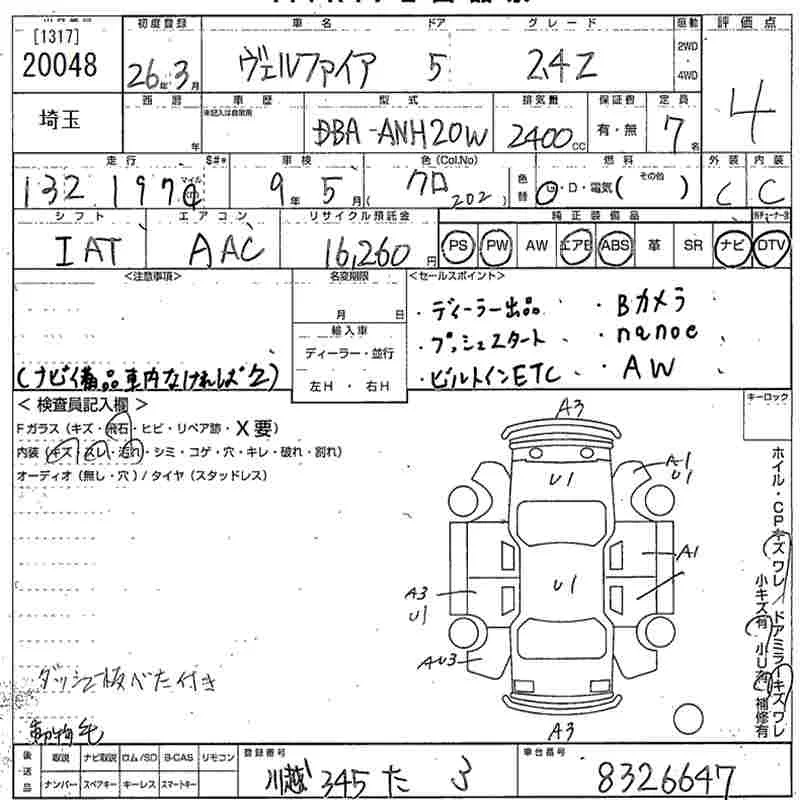 [1317]
20048
初度登録 車名 ドア グレード 駆動 評価点
26年3月 ヴェルファイア 5 2.4Z 2WD 4WD 4
埼玉
西暦 車歴 型式 排気量 保証書 定員
未記入は自家用
年 DBA-ANH20W 2400cc 有・無 7名
走行 S#* 車検 色(Col.No) 燃料 外装 内装
132,197 マイル km 9年5月 ( クロ 202 ) 色替 G・D・電気( その他 ) C C
シフト エアコン リサイクル預託金 純正装備品
IAT AAC 16,260円 PS PW AW エアB ABS 革 SR ナビ DTV
<注意事項> 名変期限 <セールスポイント>
月 日
・ディーラー出品 ・Bカメラ
輸入車
・プッシュスタート ・nanoe
ディーラー・並行
・ビルトインETC ・AW
(ナビ備品車内なければ欠)
左H ・ 右H
< 検査員記入欄 >
キーロック
Fガラス(キズ・飛石・ヒビ・リペア跡・X要)
内装(キズ・スレ・汚れ・シミ・コゲ・穴・キレ・破れ・割れ)
オーディオ(無し・穴)/タイヤ(スタッドレス)
A3
U1
A1
U1
A1
U1
A3
U1
AU3
A3
ホイル・CPキズ ワレ/ドアミラーキズ ワレ
小キズ有 小U有 補修有
ダッシュ板べた付き
動物毛
後送品 取説 ナビ取説 ロム/SD B-CAS リモコン 登録番号 車台番号
ナンバー スペアキー キーレス スマートキー 川越 345 た 3 8326647